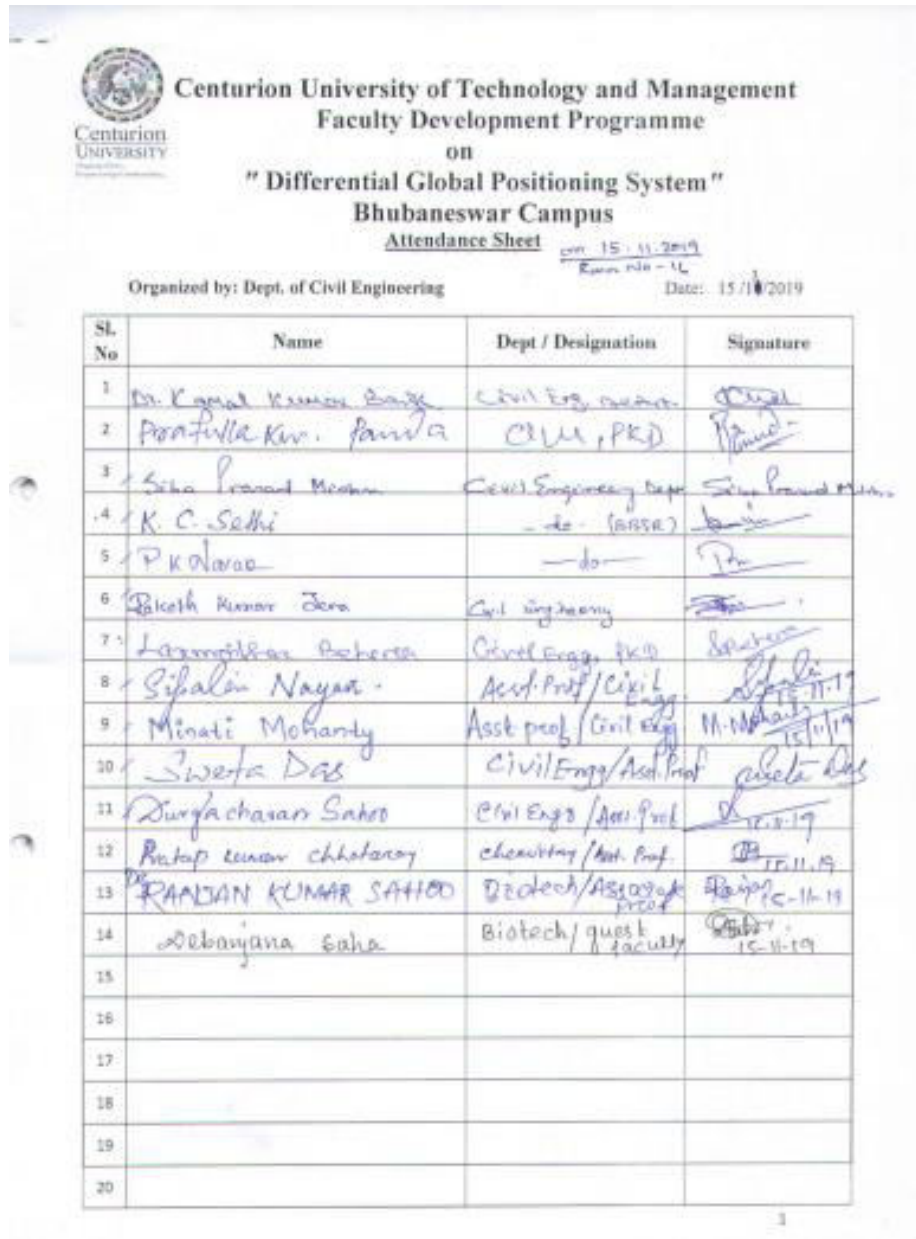 Centurion
UNIVERSITY
Centurion University of Technology and Management
Faculty Development Programme
on
" Differential Global Positioning System"
Bhubaneswar Campus
Attendance Sheet on 15.11.2019
Room No -
Organized by: Dept. of Civil Engineering Date: 15/11/2019
Sl. No Name Dept / Designation Signature
1 Dr. Kamal Kumar Barik Civil Eng.
2 Prafulla Kr. Panda Civil, PKD
3 Siba Prasad Mishra Civil Engineering Dept Siba Prasad Mishra
4 K. C. Sethi - do - (BBSR)
5 P K —do—
6 Rakesh Kumar Jena Civil Engineering
7 Laxmidhar Behera Civil Engg, PKD
8 Sipalin Nayak. Asst. Prof/Civil Engg. 15-11-19
9 Minati Mohanty Asst prof/Civil Engg M. Mohanty 15/11/19
10 Sweta Das Civil Engg/Asst. Prof Sweta Das
11 Durgacharan Sahoo Civil Engg/Asst. Prof 15.11.19
12 Pratap Kumar chhotaray chemistry/Asst. Prof. 15.11.19
13 Dr RANJAN KUMAR SAHOO Biotech/ Prof 15-11-19
14 Debanjana Saha Biotech/guest faculty 15-11-19
15
16
17
18
19
20
1